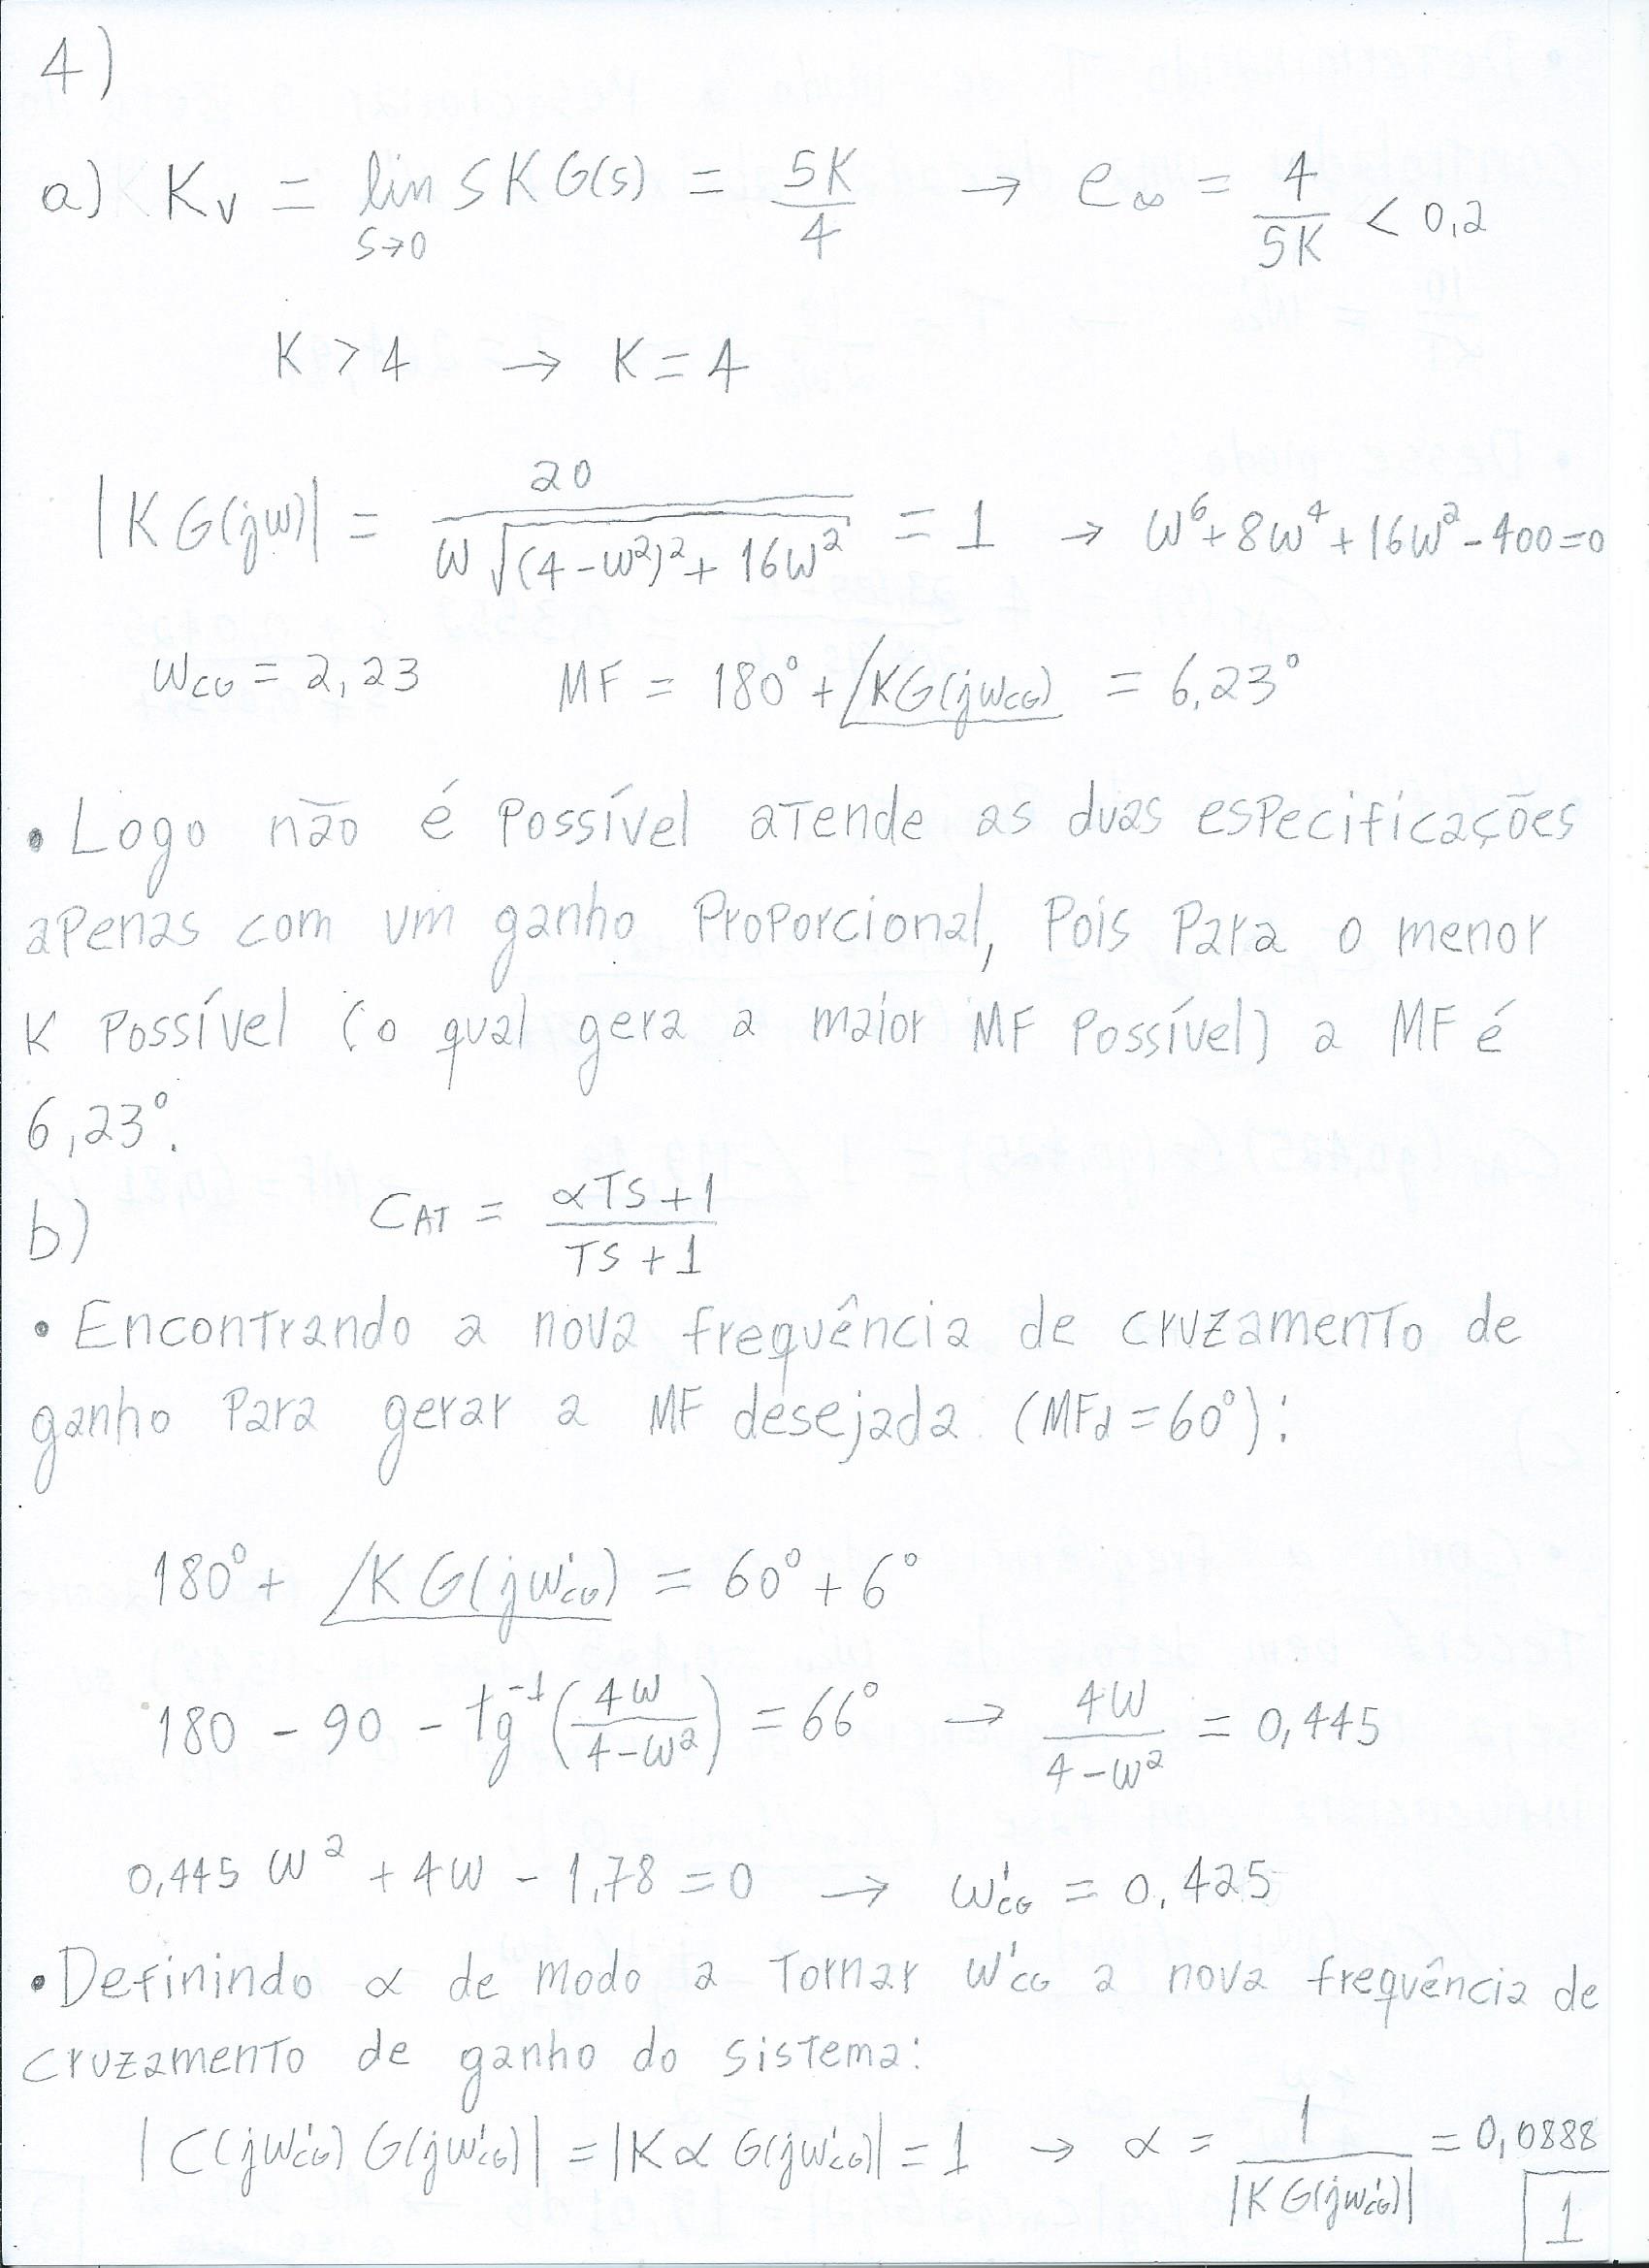 4)
a) Kv = lin s→0 S K G(s) = 5K/4 → e∞ = 4/5K < 0,2
K > 4 → K = 4
|K G(jω)| = 20/(ω √((4-ω²)² + 16ω²)) = 1 → ω⁶+8ω⁴+16ω²-400=0
ωCG = 2,23 MF = 180° + /KG(jωCG) = 6,23°
• Logo não é possível atende as duas especificações
apenas com um ganho Proporcional, Pois Para o menor
K Possível (o qual gera a maior MF Possível) a MF é
6,23°.
b) CAT = (αTS+1)/(TS+1)
• Encontrando a nova frequência de cruzamento de
ganho Para gerar a MF desejada (MFd=60°):
180° + /K G(jω'CG) = 60° + 6°
180 - 90 - tg⁻¹(4ω/(4-ω²)) = 66° → 4ω/(4-ω²) = 0,445
0,445 ω² + 4ω - 1,78 = 0 → ω'CG = 0,425
• Definindo α de modo a Tornar ω'CG a nova frequência de
cruzamento de ganho do sistema:
|C(jω'CG) G(jω'CG)| = |K α G(jω'CG)| = 1 → α = 1/|K G(jω'CG)| = 0,0888
1